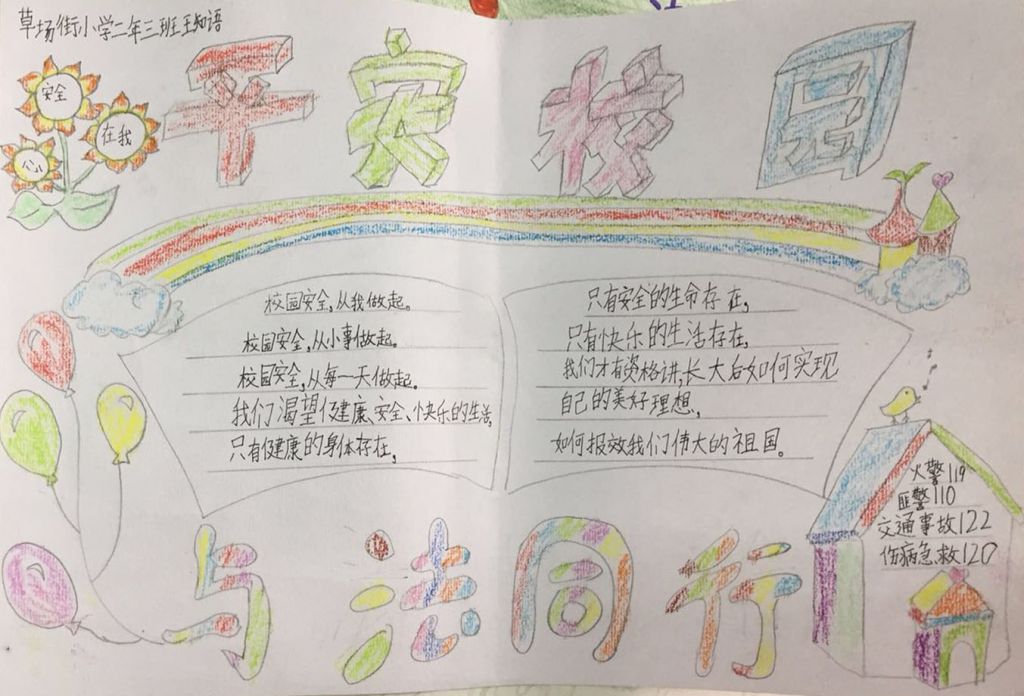 草场街小学二年三班王知语
平安校园
安全
在我
心
校园安全,从我做起。
校园安全,从小事做起。
校园安全,从每一天做起。
我们渴望健康、安全、快乐的生活,
只有健康的身体存在,
只有安全的生命存在,
只有快乐的生活存在,
我们才有资格讲,长大后如何实现
自己的美好理想,
如何报效我们伟大的祖国。
火警119
匪警110
交通事故122
伤病急救120
与法同行